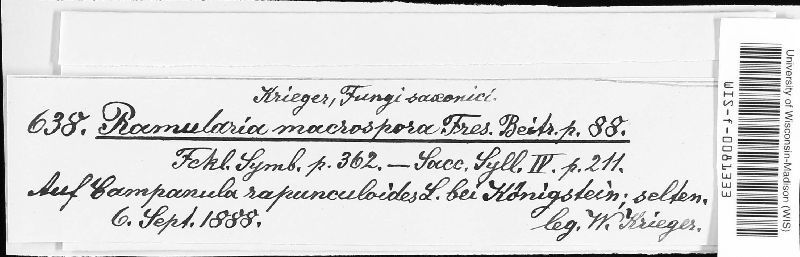 Krieger, Fungi saxonici.
638. Ramularia macrospora Fres. Beitr. p. 88.
Fckl. Symb. p. 362. — Sacc. Syll. IV. p. 211.
Auf Campanula rapunculoides L. bei Königstein; selten.
6. Sept. 1888. leg. W. Krieger.
University of Wisconsin-Madison (WIS)
WIS-f-0081333